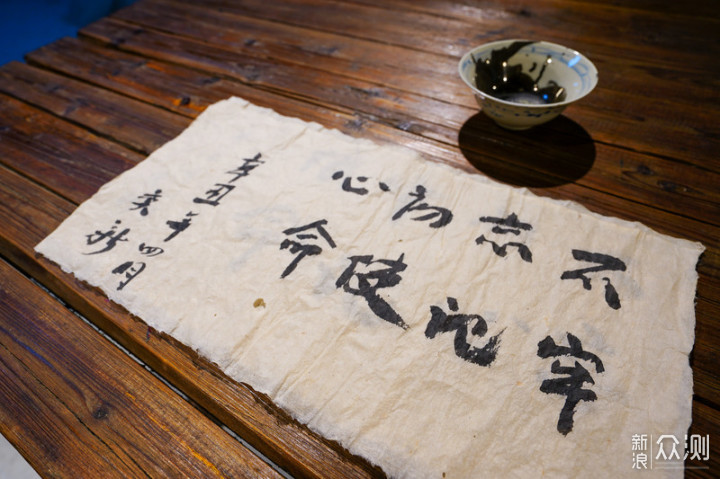 不忘初心
牢记使命
辛丑年四月
新浪众测